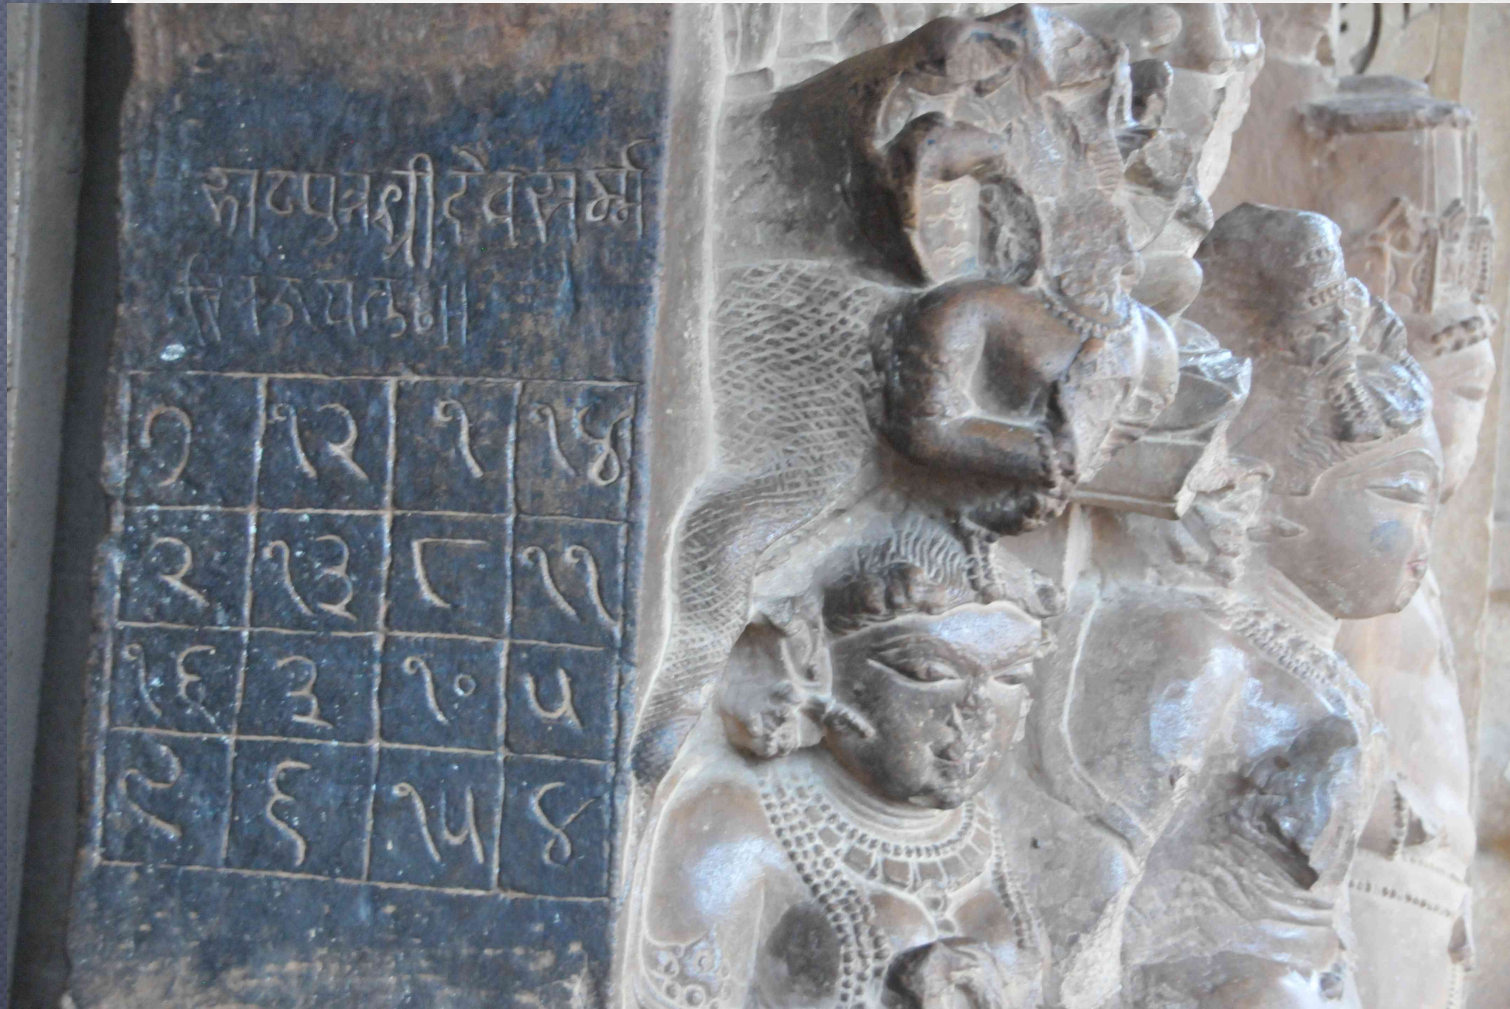 रूाटपुत्रश्रीदेवसर्म्म
॥
७ १२ १ १४
२ १३ ८ ११
१६ ३ १० ५
९ ६ १५ ४